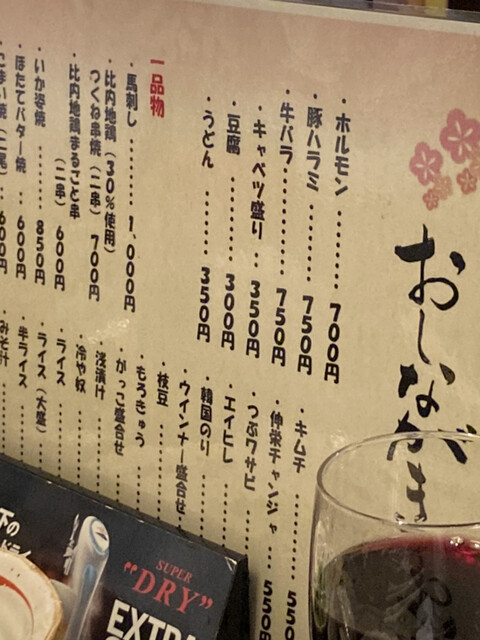 おしながき
・ホルモン………700円
・豚ハラミ………750円
・牛バラ…………750円
・キャベツ盛り…350円
・豆腐……………300円
・うどん…………350円
一品物
・馬刺し………1,000円
・比内地鶏（30％使用）
つくね串焼（二串）700円
・比内地鶏まるごと串
（二串）600円
・いか姿焼………850円
・ほたてバター焼‥600円
・こまい焼（二尾）‥600円
・キムチ………550
・伸栄チャンジャ…550円
・つぶワサビ
・エイヒレ
・韓国のり
・ウインナー盛合せ
・枝豆
・もろきゅう
・がっこ盛合せ
・浅漬け
・冷や奴
・ライス
・ライス（大盛）
・半ライス
・みそ汁
下の
ドライ
SUPER
"DRY"
EXTRA